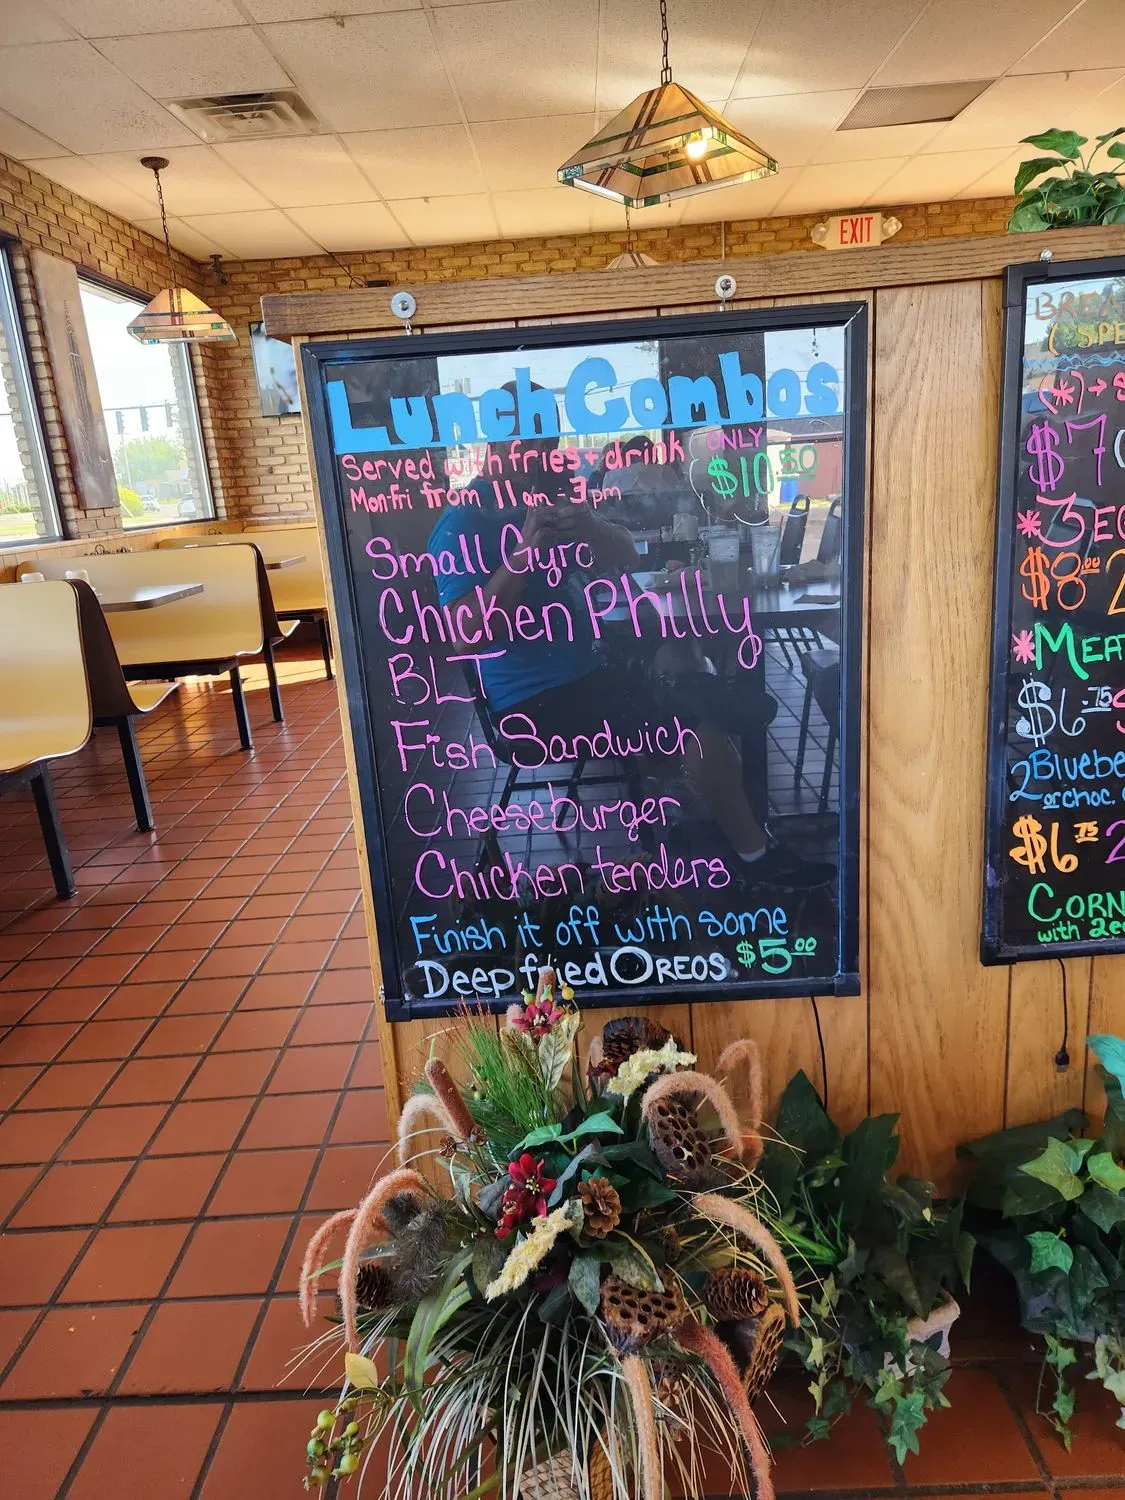 EXIT
Lunch Combos
Served with fries + drink
ONLY
$10.50
Mon-Fri from 11am - 3pm
Small Gyro
Chicken Philly
BLT
Fish Sandwich
Cheeseburger
Chicken tenders
Finish it off with some
Deep fried OREOS $5.00
(*)→
$7
*3
$8.00 2
*MEA
$6.75
2
or choc.
$6.75 2
CORN
with 2